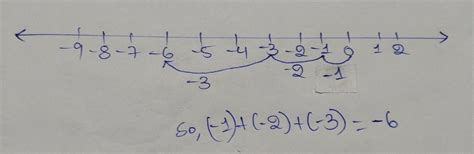 -9 -8 -7 -6 -5 -4 -3 -2 -1 0 1 2
-3 -2 -1
So, (-1)+(-2)+(-3)=-6